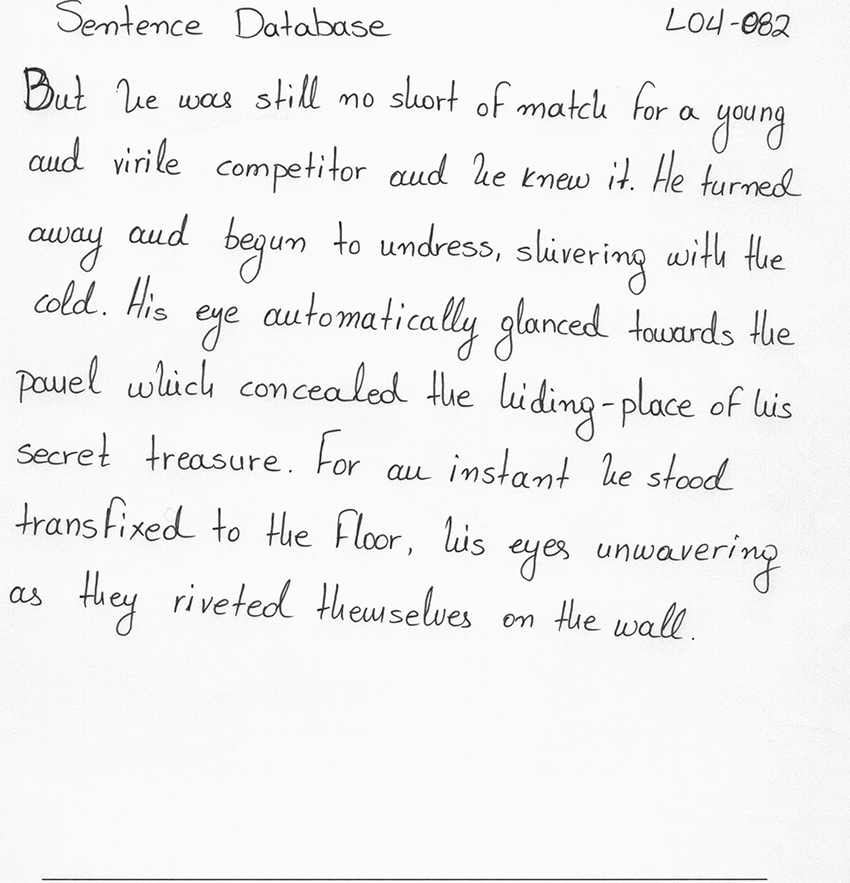 Sentence Database L04-082
But he was still no short of match for a young
and virile competitor and he knew it. He turned
away and begun to undress, shivering with the
cold. His eye automatically glanced towards the
panel which concealed the hiding-place of his
secret treasure. For an instant he stood
transfixed to the floor, his eyes unwavering
as they riveted themselves on the wall.